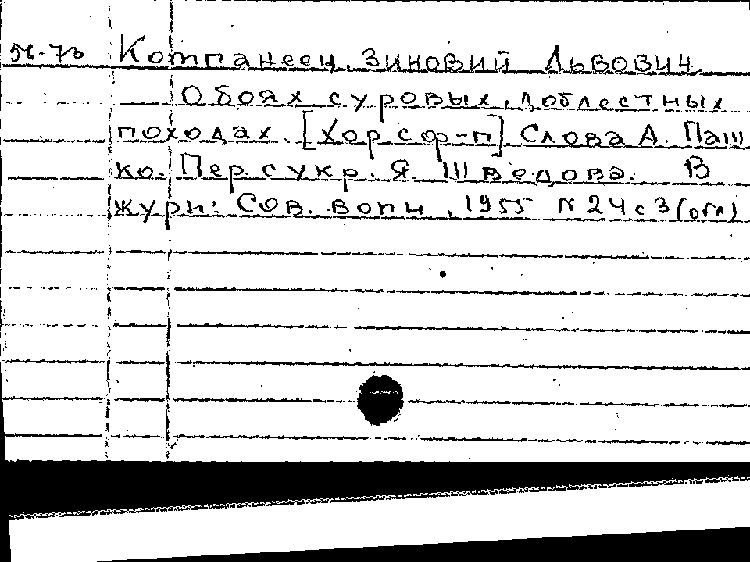 Компанеец, Зиновий Львович.
О боях суровых, доблестных
походах. [Хор с ф-п] Слова А. Паш
ко. Пер. с укр. Я. Шведова. В
журн: Сов. воин, 1955 № 24 с 3 (обл)